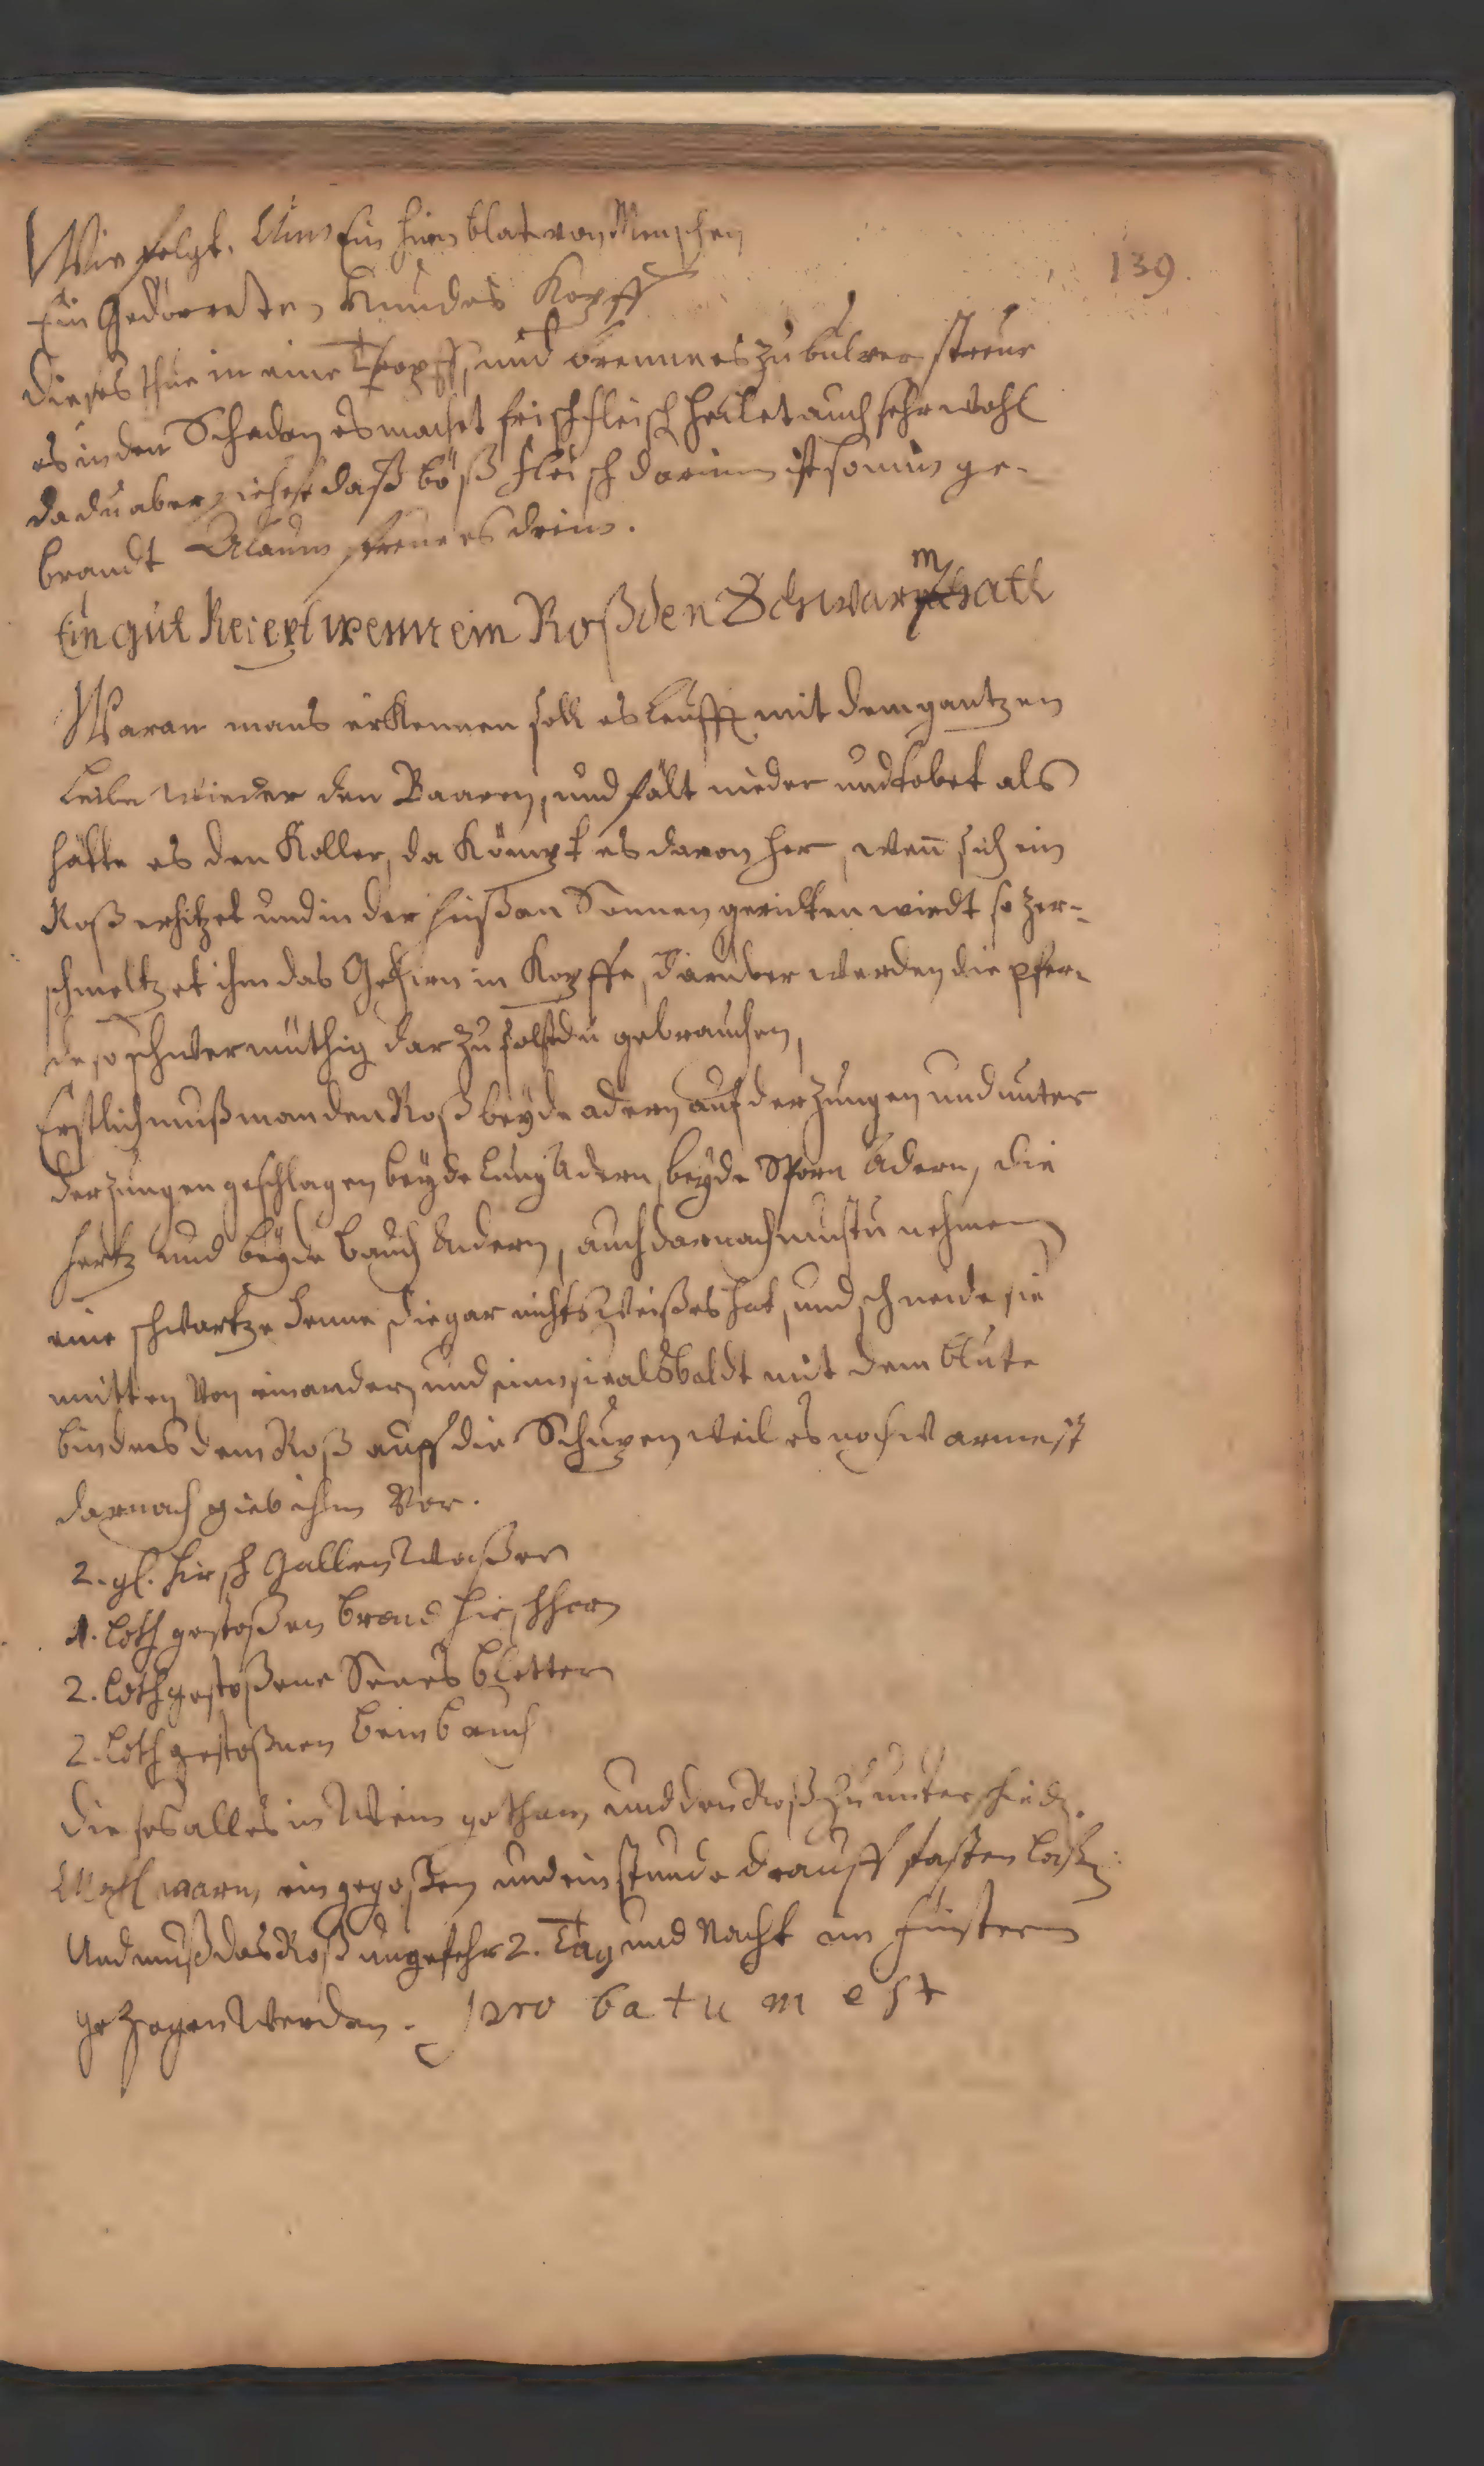 Wie folgt. Nim Ein hirn blat von Menschen
139.
Ein Gedörreten Hundes Kopff
dieses thue in eine Topff, und brennes zu bulver, streue
es in den Schaden es machet frisch fleisch heilet auch sehr wohl
da du aber siehest daß böß fleisch darinnen ist so nim ge-
brandt Alaun streue es drein.
Ein gut Recept wenn ein Roß den Schwarm hatt
Waran mans erkennen soll es leufft mit dem gantzen
Leibe wieder den Baaren, und fält nieder und tobet als
hätte es den Koller, da kömpt es davon her, wen̄ sich ein
Roß erhitzet und in der heißen Sonnen geritten wirdt so zer-
schmeltzet ihm das Gehirn in Kopffe, darüber werden die pfer-
de so schwermüthig dar zu solstdu gebrauchen,
Erstlich muß man den Roß beyde adern auf der Zungen und unter
der Zungen geschlagen beyde Lung Adern, beyde Sporn Adern, die
hertz und beyde bauch Adern, auch darnach mustu nehmen
eine schwartze henne die gar nichts Weißes hat, und schneide sie
mitten Von einander und nim sie alsbaldt mit dem blute
bindes dem Roß auff die Schupen weil es noch warm ist
darnach gieb ihm Vor.
2. gl. hirsch Gallen Waßer
1. loth gestoßen brand hirschhorn
2. loth gestoßene Senes bletter
2. loth gestoßnen beinbruch
dieses alles in Wein gethan, und den Roß zu unterschied.
Mahl warm, eingegoßen und ein stunde drauff fasten laßen.
Und muß das Roß ungefehr 2. Tag und Nacht im finstern
gezogen Werden. probatum est